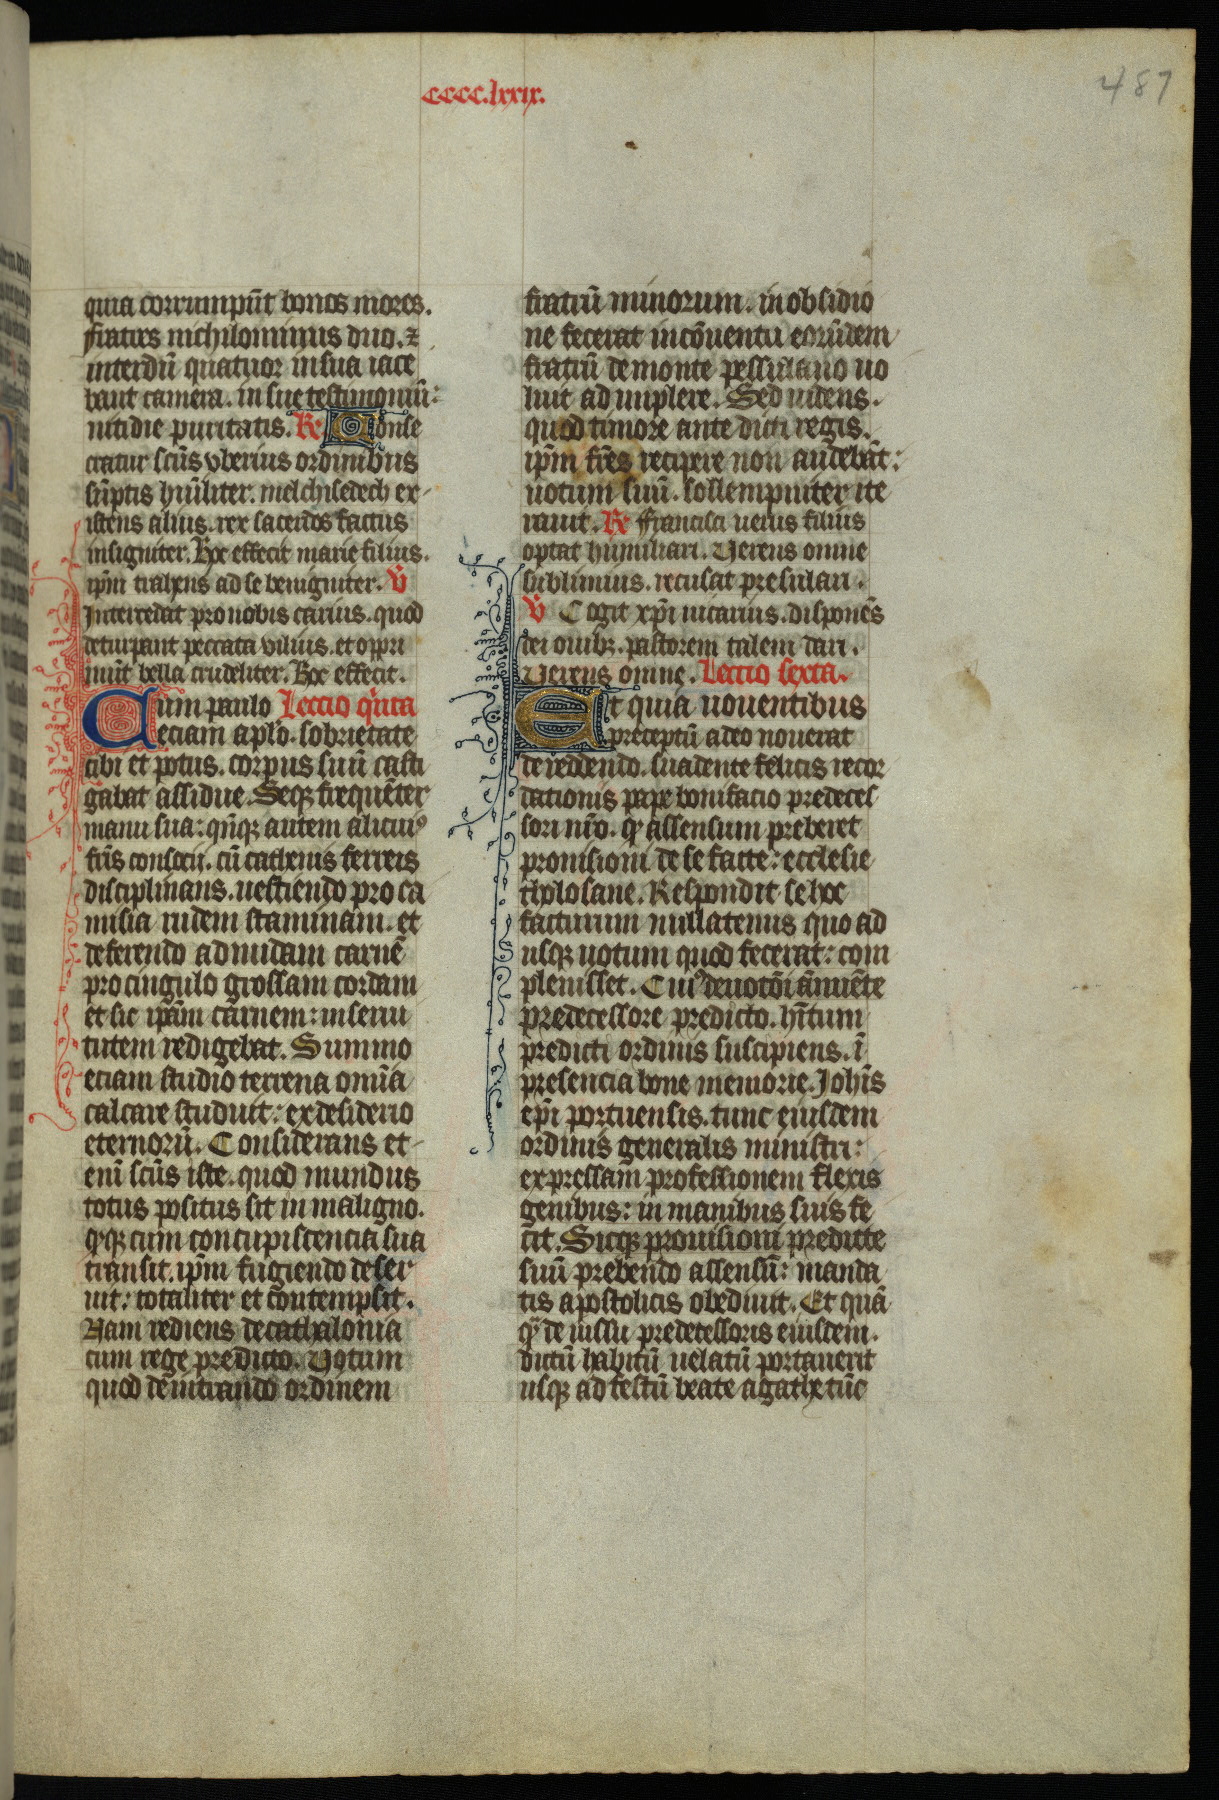 cccc.lxxix.
487
quia corrumpūt bonos mores.
fratres nichilominus duo. ⁊
interdū quatuor in sua iace
bant camera. in sue testimoniū:
nitidie puritatis. R̃ Conse
cratur scūs vberius ordinibus
sūptis hūiliter. melchisedech ex-
istens alius. rex sacerdos factus
insigniter. Hoc effecit marie filius.
ip̄m trahens ad se benigniter. V̄
Intercedat pro nobis carius. quod
deturpant peccata vilius. et oppri
mūt bella crudeliter. Hoc effecit.
Cum paulo Lectio qu̅ta
eciam ap̄lo. sobrietate
cibi et potus. corpus suū casti
gabat assidue. Seqꝫ frequēter
manu sua: qn̄qꝫ autem alicuiꝰ
fr̄is consocii. cū cathenis ferreis
disciplinans. uestiendo pro ca
misia rudem staminam. et
deferendo ad nudam carnē
pro cingulo grossam cordam
et sic ip̄am carnem: in serui
tutem redigebat. Summo
eciam studio terrena om̄ia
calcare studuit: ex desiderio
eternorū. Considerans et-
eni scūs iste. quod mundus
totus positus sit in maligno.
qꝫ cum concupiscencia sua
transit. ip̄m fugiendo deser
uit: totaliter et cōntempsit.
Nam rediens de cathalonia
cum rege predicto. Uotum
quod de intrando ordinem
fratrū minorum. in obsidio
ne fecerat in cōuentu eorūdem
fratrū de monte pessulano uo
luit adimplere. Sed uidens.
quod timore ante dicti regis.
ip̄m fr̄es recipere non audebāt:
uotum suū. sollempniter ite
rauit. R̃ Francisci uerus filius
optat humiliari. Uerens omne
sublimius. recusat presulari.
V̄ Cogit xp̄i uicarius. disponēs
dei ouibꝫ. pastorem talem dari.
Uerens omne. Lectio sexta.
Et quia uouentibus
preceptū a deo nouerat
de reddendo. suadente felicis recor
dationis pape bonifacio predeces
sori nr̄o. qꝫ assensum preberet
prouisioni de se facte: ecclesie
tholosane. Respondit se hoc
facturum nullatenus quo ad
usqꝫ uotum quod fecerat: com
pleuisset. Cuiꝰ deuotōi ānuēte
predecessore predicto. h̄itum
predicti ordinis suscipiens. ī
presencia bone memorie Joh̄is
ep̄i portuensis. tunc eiusdem
ordinis generalis ministri:
expressam professionem flexis
genibus: in manibus suis fe
cit. Sicqꝫ prouisioni predicte
suū prebendo assensū: manda
tis apostolicis obediuit. Et quā
qꝫ de iussu predecessoris eiusdem.
dictū habitū uelatū portauerit
usqꝫ ad festū beate agathe tūc